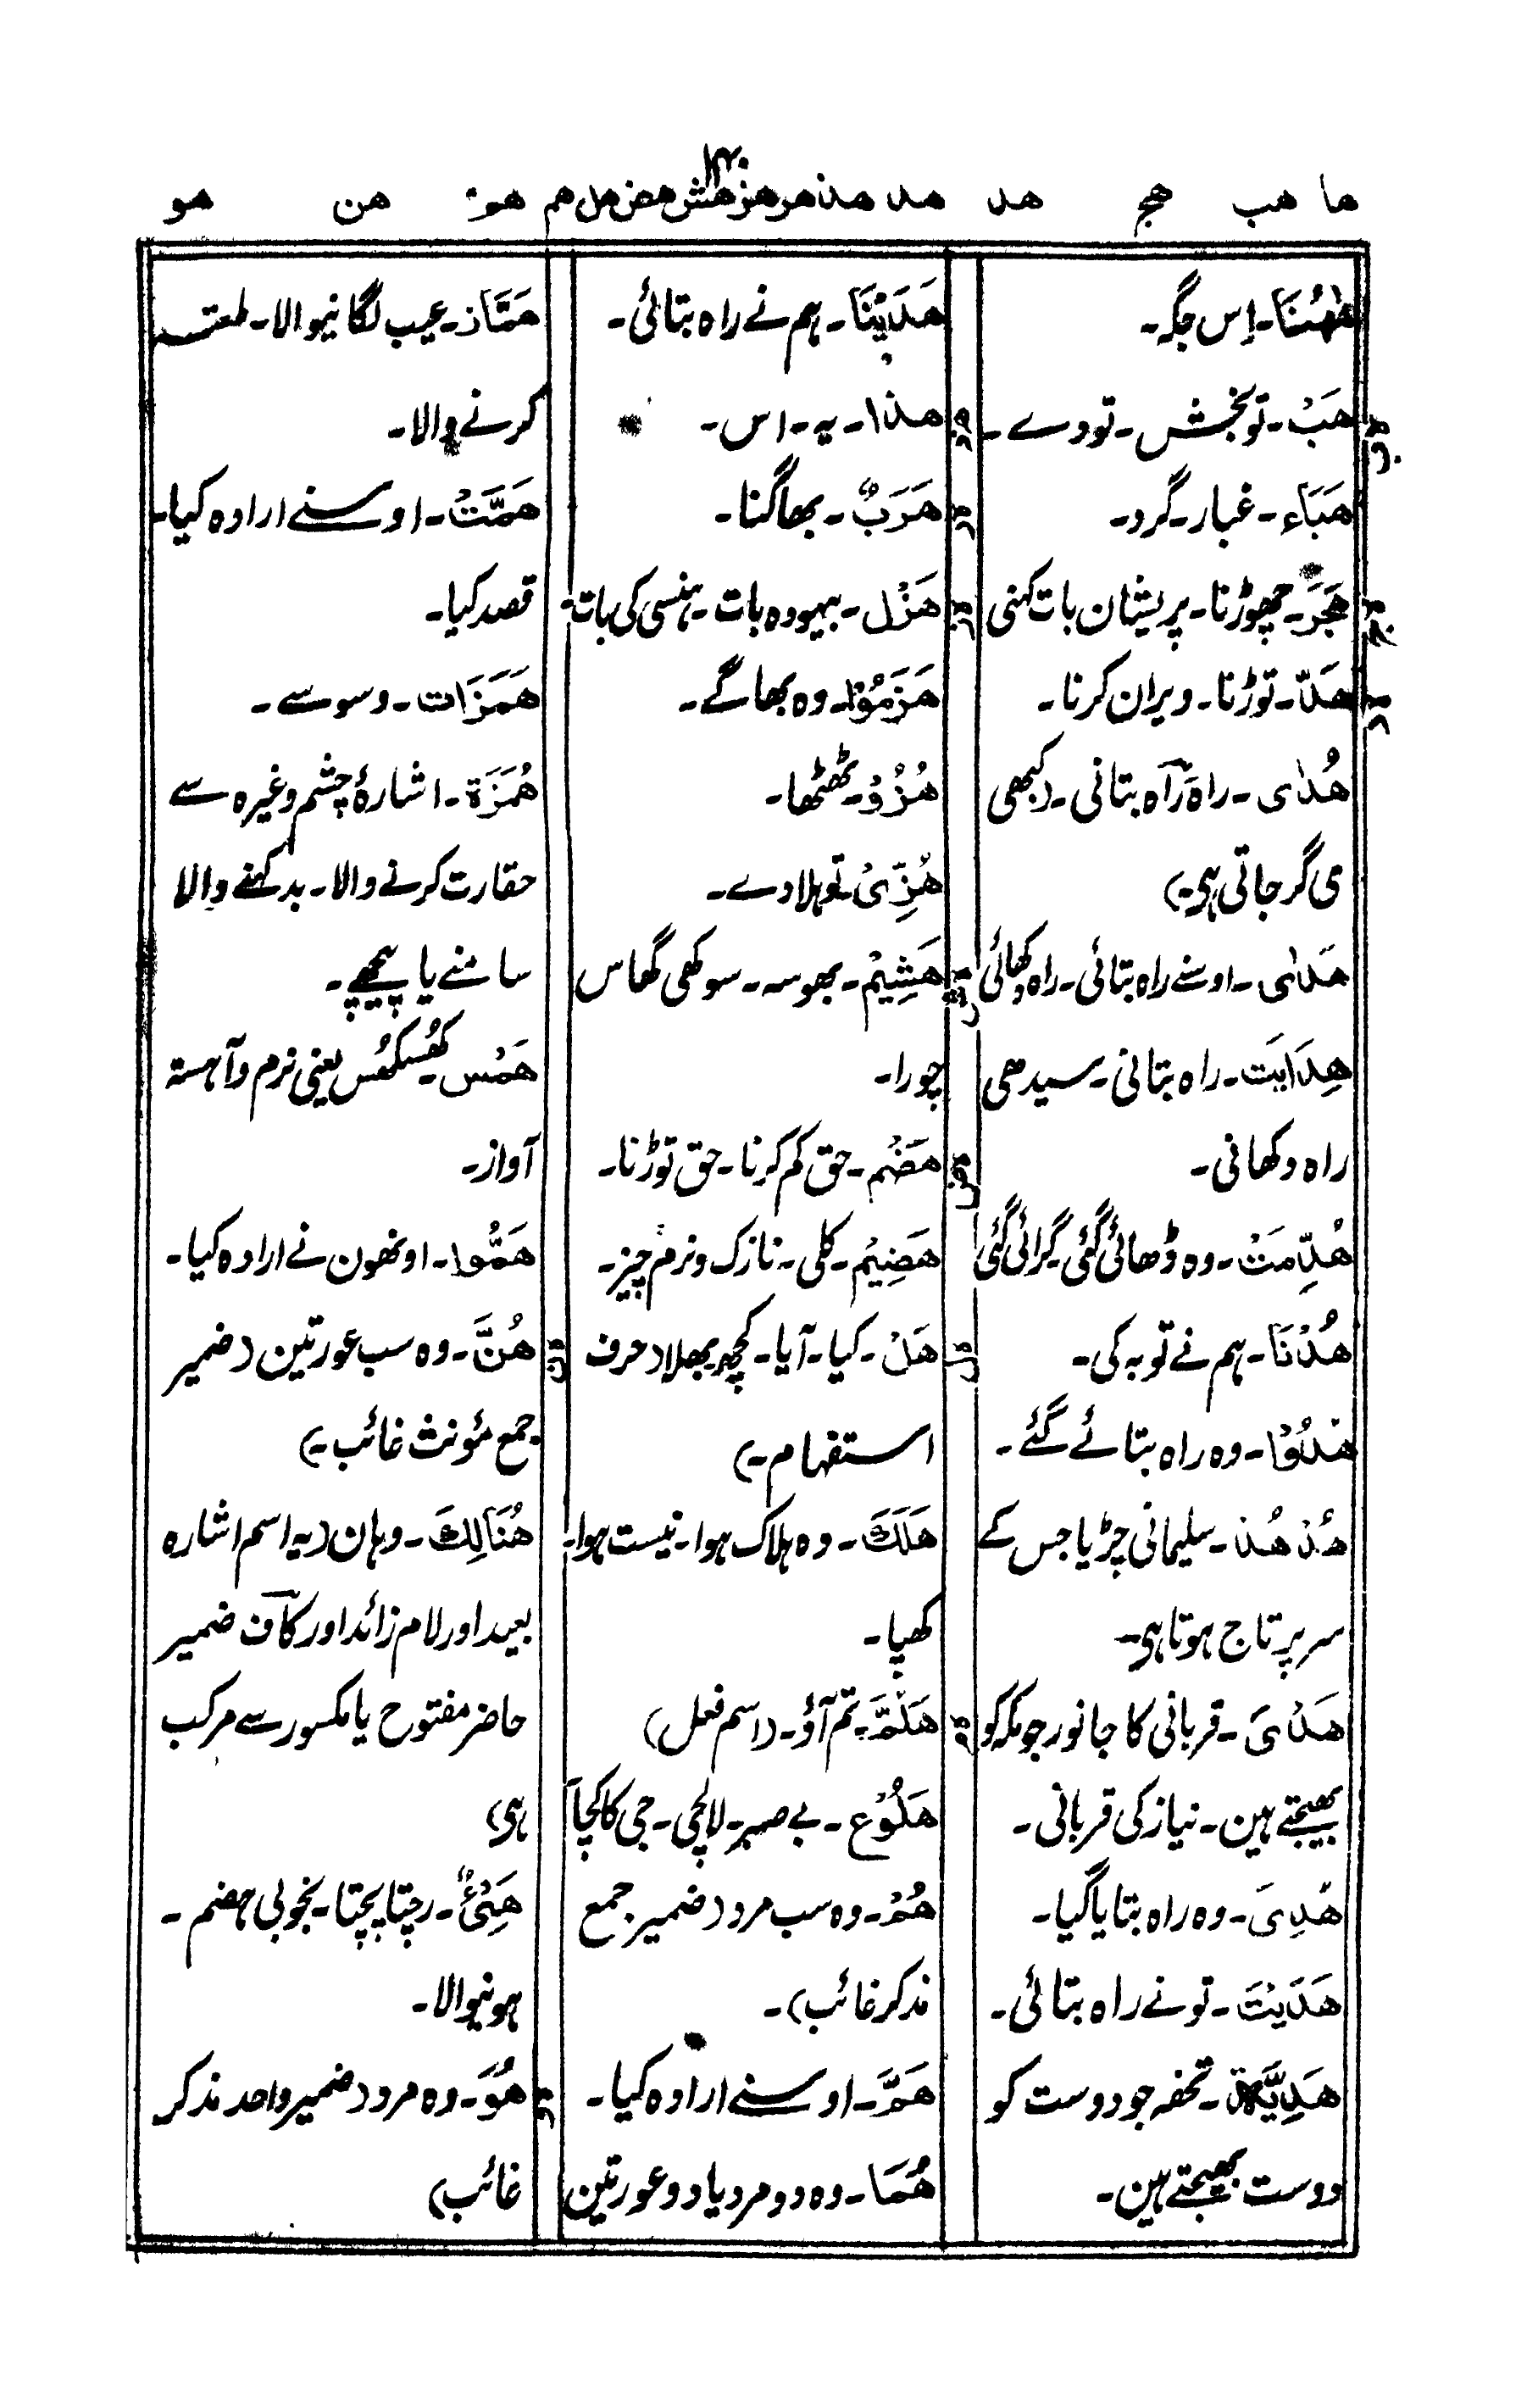 ۱۴۰
ها هب هج هد هد هذ هر هز هش هض هل هم هو هن هو
هٰهُنَا۔ اِس جگہ۔
هب
هَبْ۔ تو بخش۔ تو دے۔
هَبَآء۔ غبار۔ گرد۔
هج
هَجْر۔ چھوڑنا۔ پریشان بات کہنی
هد
هَدّ۔ توڑنا۔ ویران کرنا۔
هُدٰی۔ راہ راہ بتانی۔ (کبھی
ی گر جاتی ہی۔)
هَدٰی۔ اوسنے راہ بتائی۔ راہ دکھائی
هِدَایَت۔ راہ بتانی۔ سیدھی
راہ دکھانی۔
هُدِّمَتْ۔ وہ ڈھائی گئی۔ گرائی گئی
هُدْنَا۔ ہم نے توبہ کی۔
هُدُوْا۔ وہ راہ بتائے گئے۔
هُدْهُد۔ سلیمانی چڑیا جس کے
سر پر تاج ہوتا ہی۔
هَدْیَ۔ قربانی کا جانور جو مکہ کو
بھیجتے ہین۔ نیاز کی قربانی۔
هُدِیَ۔ وہ راہ بتایا گیا۔
هَدَیْتَ۔ تو نے راہ بتائی۔
هَدِیَّة۔ تحفہ جو دوست کو
دوست بھیجتے ہین۔
هَدَیْنَا۔ ہم نے راہ بتائی۔
هذ
هذا۔ یہ۔ اس۔
هر
هَرَبٌ۔ بھاگنا۔
هز
هَزْل۔ بیہودہ بات۔ ہنسی کی بات۔
هَزَمُوْا۔ وہ بھاگے۔
هُزُوْ۔ ٹھٹھا۔
هُزِّیْ۔ تو ہلا دے۔
هش
هَشِیْم۔ بھوسہ۔ سوکھی گھاس
چورا۔
هض
هَضْم۔ حق کم کرنا۔ حق توڑنا۔
هَضِیْم۔ کلی۔ نازک و نرم چیز۔
هل
هَلْ۔ کیا۔ آیا۔ کچھ بھلا (حرف
استفہام۔)
هَلَكَ۔ وہ ہلاک ہوا۔ نیست ہوا۔
کھپا۔
هم
هَلُمَّ۔ تم آؤ۔ (اسم فعل)
هَلُوْع۔ بے صبر۔ لالچی۔ جی کا کچا
هُمْ۔ وہ سب مرد (ضمیر جمع
مذکر غائب)۔
هَمَّ۔ اوسنے ارادہ کیا۔
هُمَا۔ وہ دو مرد یا دو عورتین
هَمَّاز۔ عیب لگانیوالا۔ طعنہ
کرنے والا۔
هَمَّتْ۔ اوسنے ارادہ کیا۔
قصد کیا۔
هَمَزَات۔ وسوسے۔
هُمَزَة۔ اشارۂ چشم وغیرہ سے
حقارت کرنے والا۔ بد کہنے والا
سامنے یا پیچھے۔
هَمْس۔ کھُسکھُس یعنی نرم و آہستہ
آواز۔
هَمُّوا۔ اونھون نے ارادہ کیا۔
هن
هُنَّ۔ وہ سب عورتین (ضمیر
جمع مؤنث غائب۔)
هُنَالِكَ۔ وہان (یہ اسم اشارہ
بعید اور لام زائد اور کاف ضمیر
حاضر مفتوح یا مکسور سے مرکب
ہی)
هَنِیْءٌ۔ رچتا پچتا۔ بخوبی ہضم۔
ہونیوالا۔
هو
هُوَ۔ وہ مرد (ضمیر واحد مذکر
غائب)